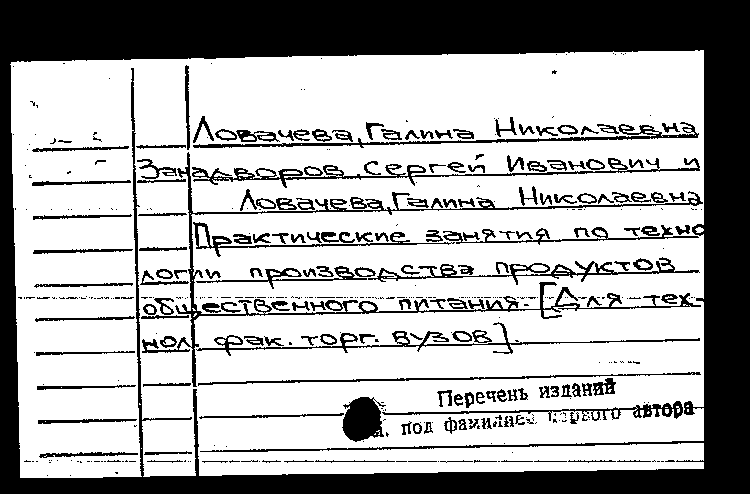 Ловачева, Галина Николаевна
Занадворов, Сергей Иванович и
Ловачева, Галина Николаевна
Практические занятия по техно
логии производства продуктов
общественного питания. [Для тех-
нол. фак. торг. вузов].
Перечень изданий
под фамилией первого автора